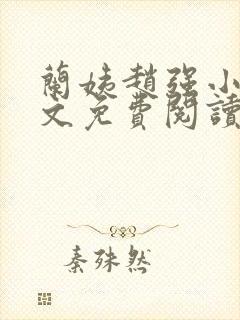 蘭姨趙強小
文免費閱讀
秦殊然